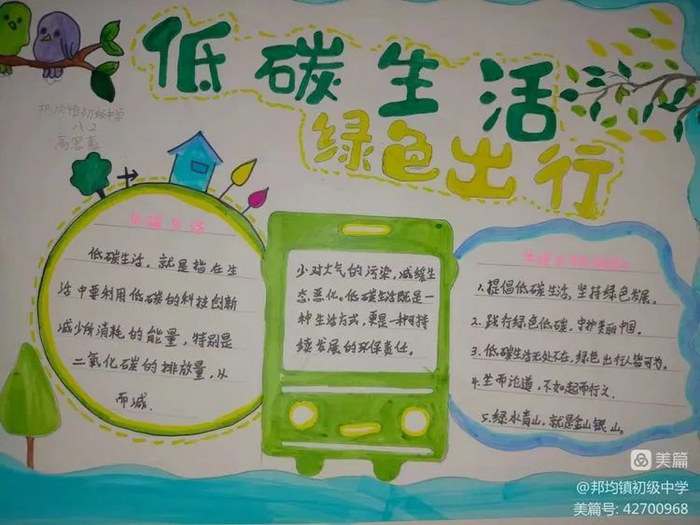 低碳生活
绿色出行
邦均镇初级中学
八.2
低碳生活
低碳生活，就是指在生
活中要利用低碳的科技创新
减少所消耗的能量，特别是
二氧化碳的排放量，从
而减
少对大气的污染，减缓生
态恶化。低碳生活既是一
种生活方式，更是一种可持
续发展的环保责任。
1.提倡低碳生活，坚持绿色发展。
2.践行绿色低碳，守护美丽中国。
3.低碳生活无处不在，绿色出行人皆可为。
4.坐而论道，不如起而行之。
5.绿水青山，就是金山银山。
美篇
@邦均镇初级中学
美篇号: 42700968